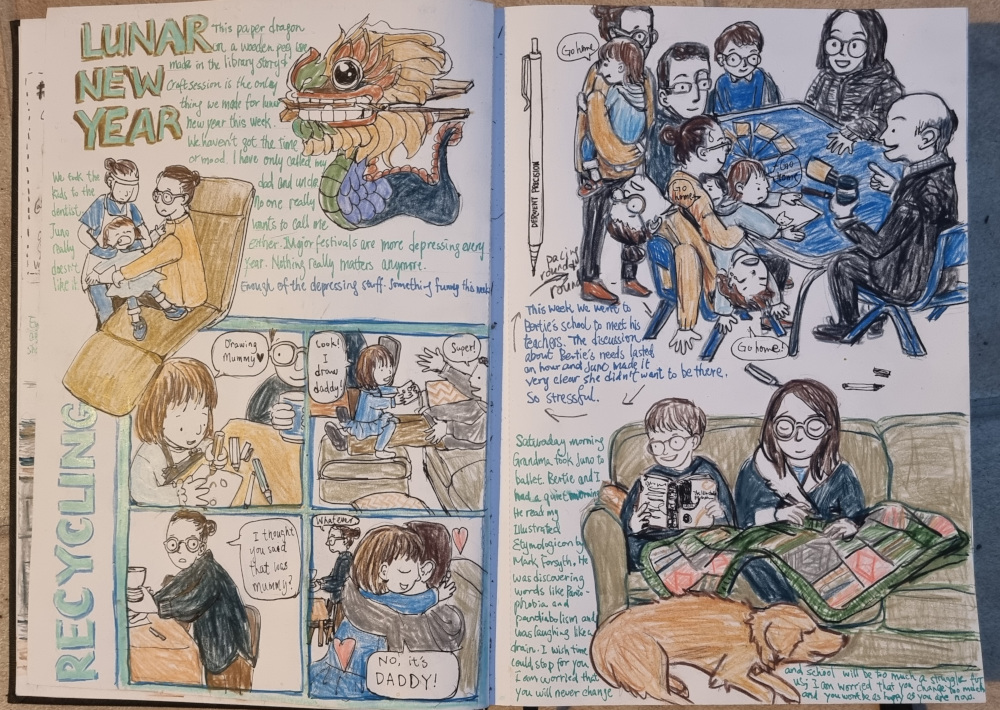 LUNAR
NEW
YEAR
This paper dragon
on a wooden peg we
made in the library story &
craft session is the only
thing we made for lunar
new year this week.
We haven't got the time
or mood. I have only called my
dad and uncle.
No one really
wants to call me
either. Major festivals are more depressing every
year. Nothing really matters anymore.
Enough of the depressing stuff. Something funny this week!
We took the
kids to the
dentist.
Juno
really
doesn't
like it.
RECYCLING
Drawing
Mummy ♥
Look!
I
draw
daddy!
Super!
I thought
you said
that was
mummy?
Whatever
No, it's
DADDY!
Go home
DERWENT PRECISION
Go
home
Go
home
pacing
round &
round
Go home!
This week we went to
Bertie's school to meet his
teachers. The discussion
about Bertie's needs lasted
an hour and Juno made it
very clear she didn't want to be there.
So stressful.
Saturaday morning
Grandma took Juno to
ballet. Bertie and I
had a quiet morning.
He read my
Illustrated
Etymologicon by
Mark Forsyth. He
was discovering
words like
phobia and
pandiabolism and
was laughing like a
drain. I wish time
could stop for you.
I am worried that
you will never change
and school will be too much a struggle for
us; I am worried that you change too much
and you won't be as happy as you are now.